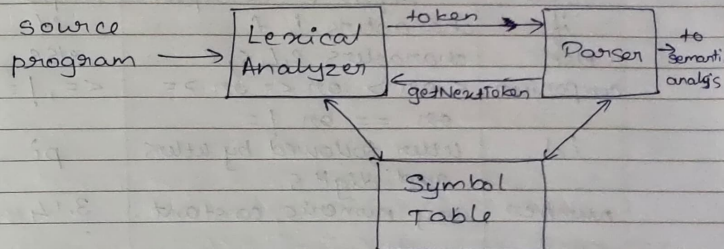 source
program
Lexical
Analyzer
token
getNextToken
Parser
to
semanti
analysis
Symbol
Table